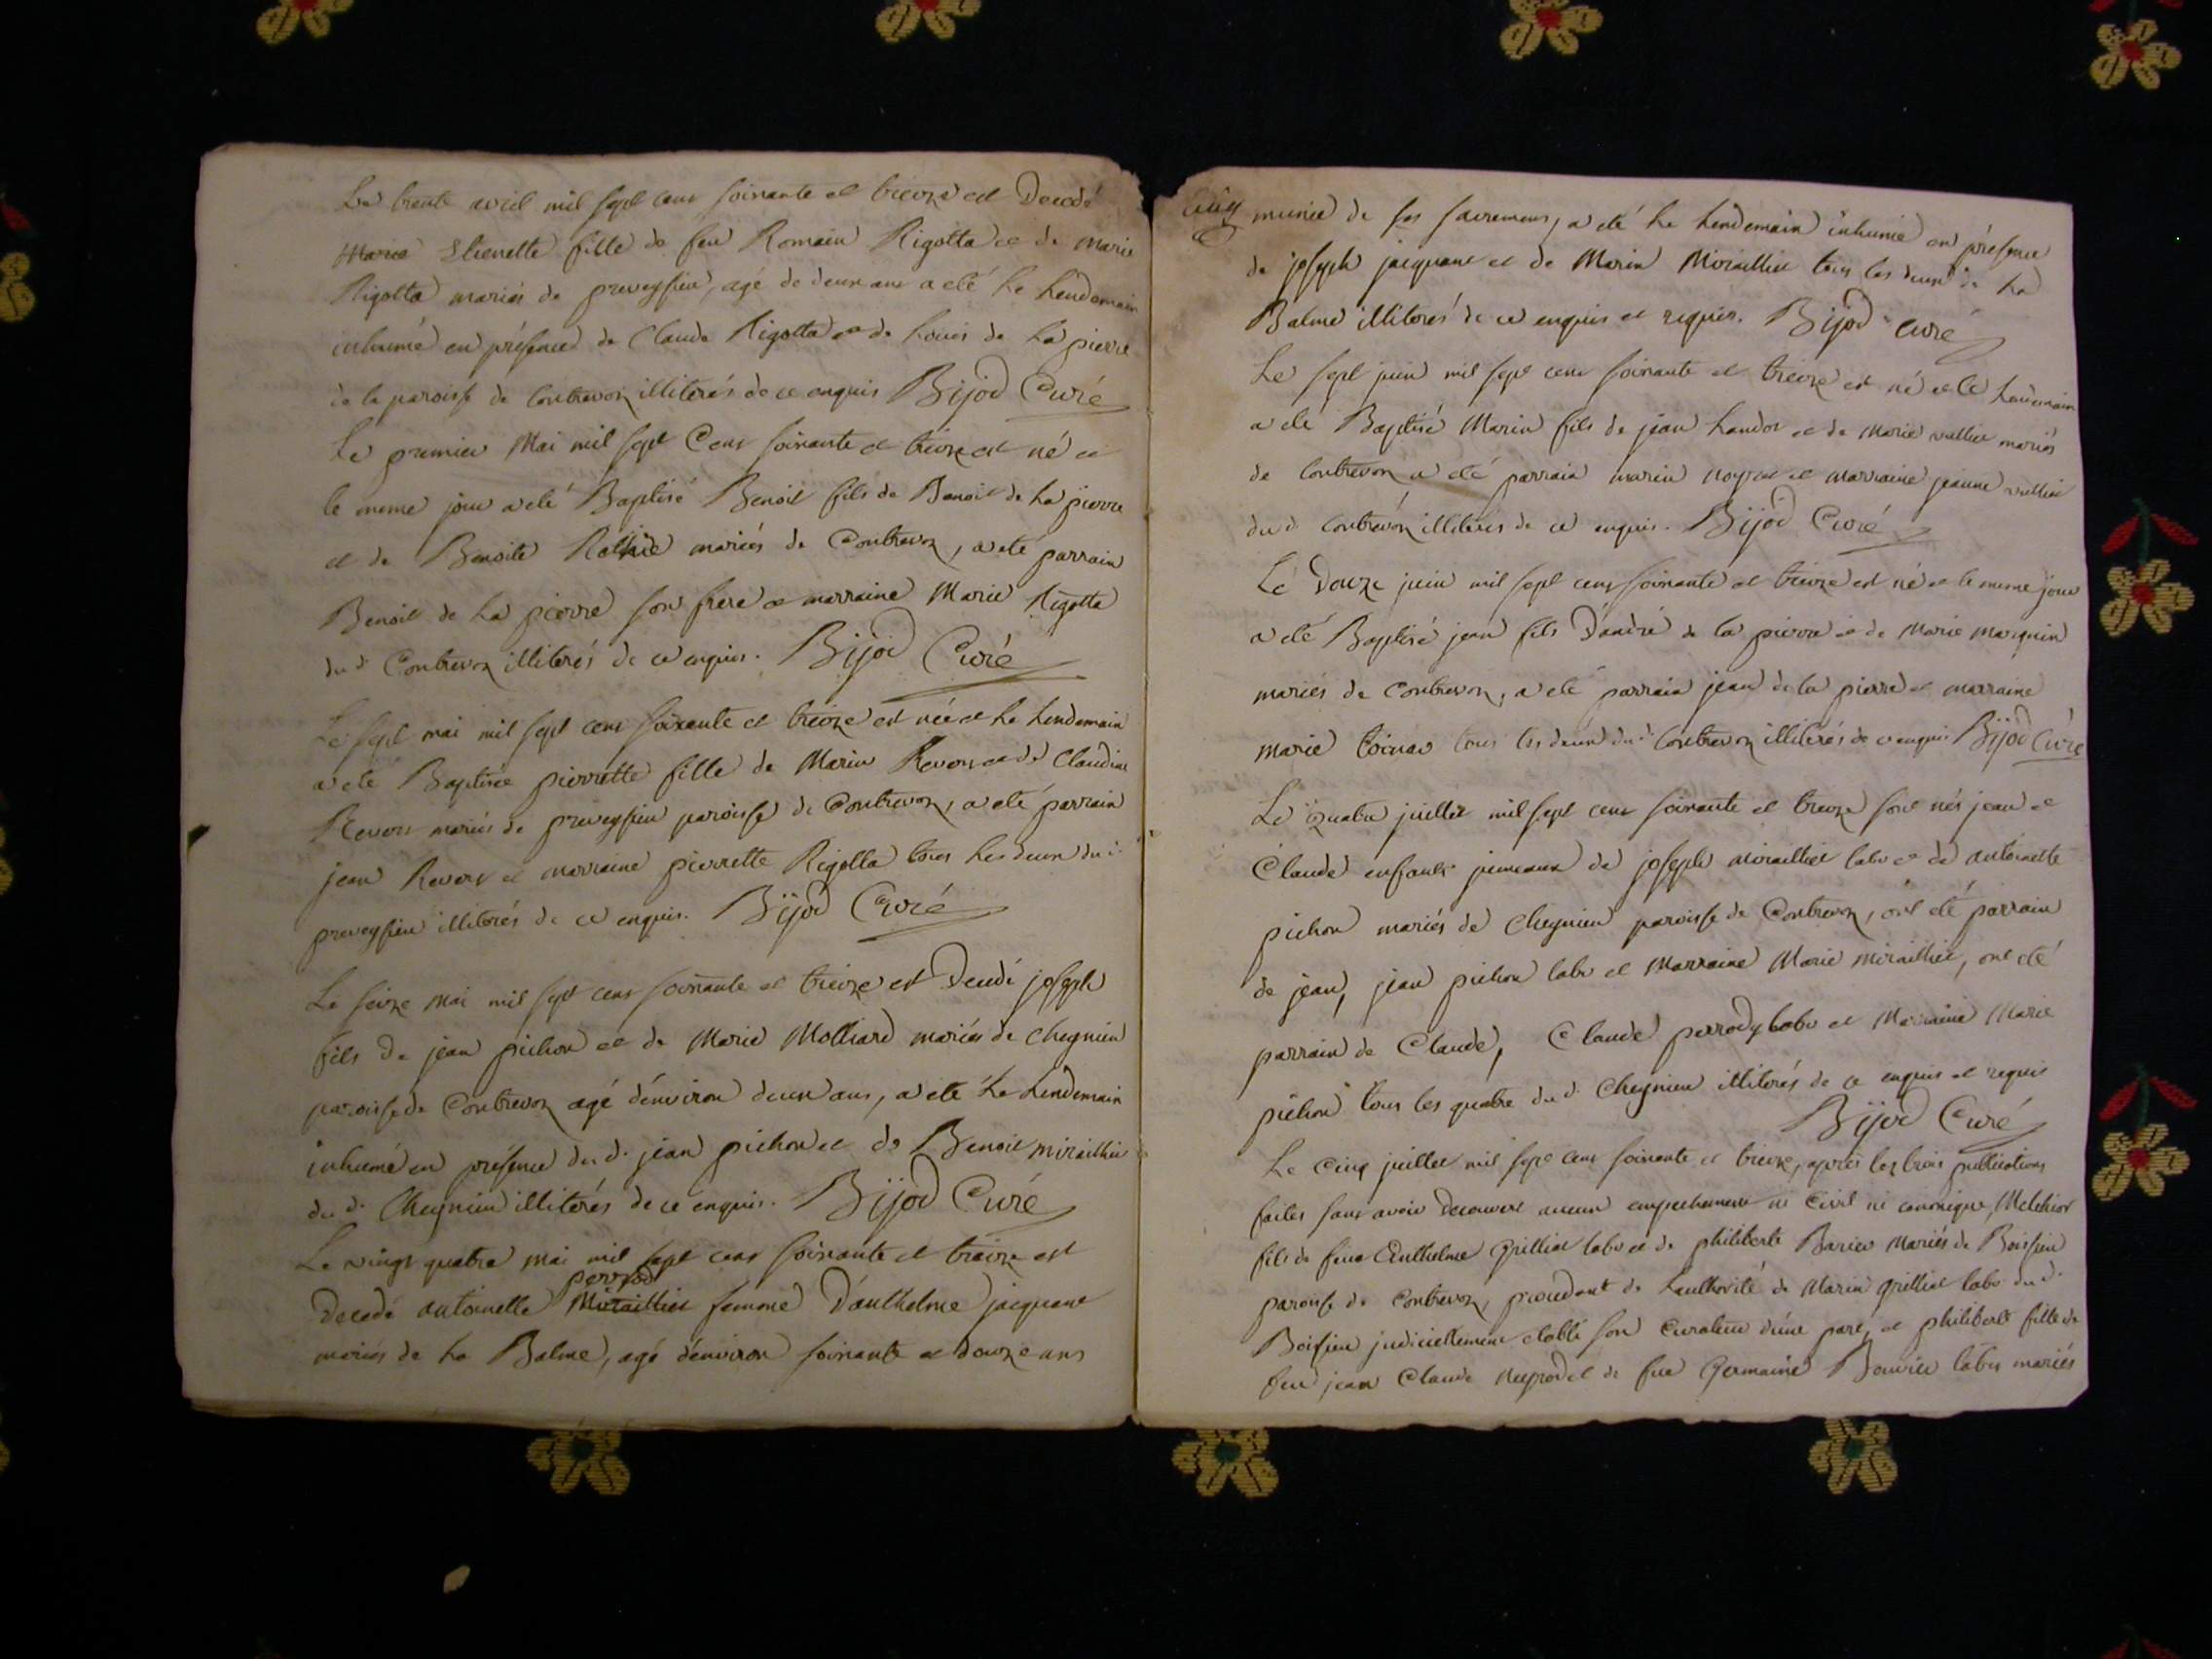 Le trente avril mil sept cens soixante et treize est Decedé
Marie Etienette fille de feu Romain Rigotta et de Marie
Rigotta mariés de preveyssieu, agé de deux ans a eté le lendemain
inhumé en présence de Claude Rigotta et de Louis de la pierre
de la paroisse de Contrevoz illiterés de ce enquis Bijod Curé
Le premier Mai mil sept Cens soixante et treize est né et
le meme jour a eté Baptisé Benoit fils de Benoit de la pierre
et de Benoite mariés de Contrevoz, a eté parrain
Benoit de la pierre son frere et marraine Marie Rigotta
du d. Contrevoz illiterés de ce enquis. Bijod Curé
Le sept mai mil sept cens soixante et treize est née et le lendemain
a eté Baptisée pierrette fille de Marin Revors et de Claudine
Revors mariés de preveyssieu paroisse de Contrevoz, a eté parrain
jean Revors et marraine pierrette Rigotta tous les deux du d.
preveyssieu illiterés de ce enquis. Bijod Curé
Le seize Mai mil sept cens soixante et treize est Decedé joseph
fils de jean pichon et de Marie Molliard mariés de Cheynieu
paroisse de Contrevoz agé d'environ deux ans, a eté le lendemain
inhumé en présence du d. jean pichon et de Benoit miraillier
du d. Cheynieu illiterés de ce enquis. Bijod Curé
Le vingt quatre mai mil sept cens soixante et treize est
perrod
Decedé antoinette Miraillier femme d'anthelme jacquant
mariés de la Balme, agé d'environ soixante et douze ans
munie de ses sacremens, a eté le lendemain inhumé en présence
de joseph jacquant et de Marin Miraillier tous les deux de la
Balme illiterés de ce enquis et requis. Bijod curé
Le sept juin mil sept cens soixante et treize est né et le lendemain
a eté Baptisé Marin fils de jean Landot et de Marie vuillier mariés
de Contrevoz a eté parrain marin et marraine jeanne vuillier
du d. contrevoz illiterés de ce enquis. Bijod Curé
Le Douze juin mil sept cens soixante et treize est né et le meme jour
a eté Baptisé jean fils d'andré de la pierre et de Marie Marquin
mariés de Contrevoz, a eté parrain jean de la pierre et marraine
marie tous les deux du d. Contrevoz illiterés de ce enquis Bijod Curé
Le Quatre juillet mil sept cens soixante et treize sont nés jean et
Claude enfants jumeaux de joseph Miraillier labr et de antoinette
pichon mariés de Cheynieu paroisse de Contrevoz, ont eté parrain
de jean, jean pichon labr et Marraine Marie miraillier, ont eté
parrain de Claude, Claude perrody labr et Marraine Marie
pichon tous les quatre du d. Cheynieu illiterés de ce enquis et requis
Bijod Curé
Le Cinq juillet mil sept cens soixante et treize, après les trois publications
faites sans avoir decouvert aucun empechement ni Civil ni canonique, Melchior
fils de feu Anthelme Grilliet labr et de philiberte Barier Mariés de Boissieu
paroisse de Contrevoz, procedant de Lauthorité de Marin Grilliet labr du d.
Boissieu judiciellement etabli son Curateur d'une part, et philiberte fille de
feu jean Claude et de feue Germaine Bouvier labrs mariés